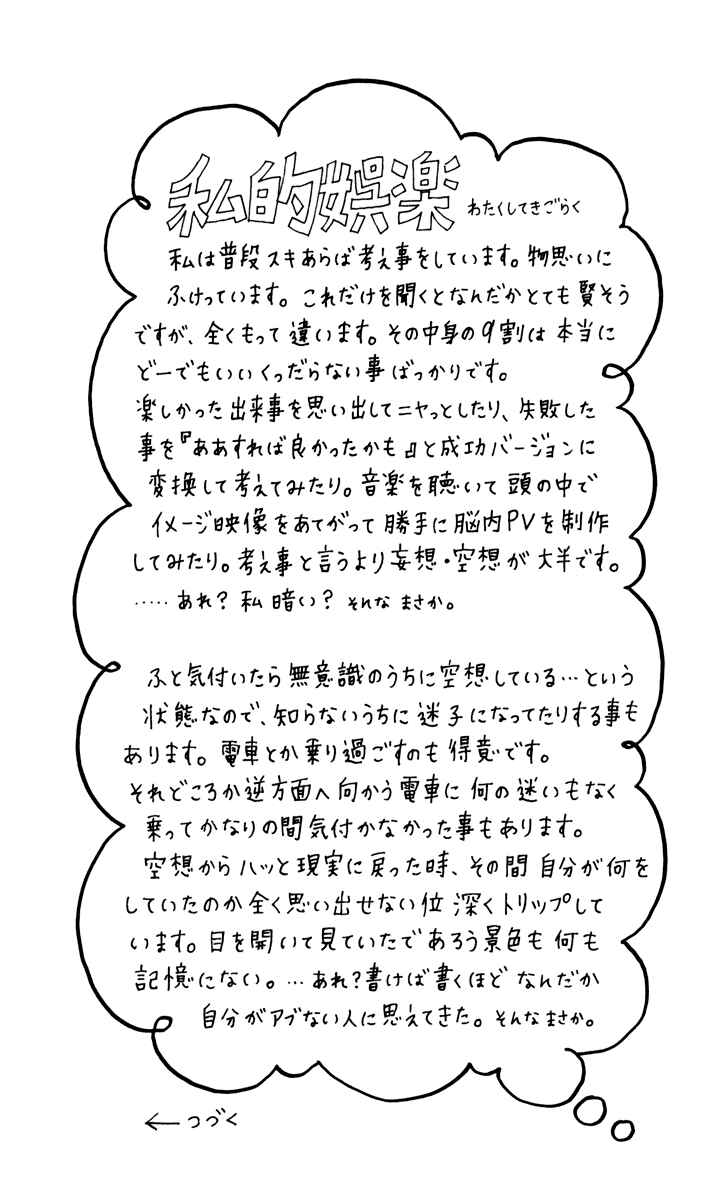 私的娯楽 わたくしてきごらく
私は普段スキあらば考え事をしています。物思いに
ふけっています。これだけを聞くとなんだかとても賢そう
ですが、全くもって違います。その中身の9割は本当に
どーでもいいくっだらない事ばっかりです。
楽しかった出来事を思い出してニヤっとしたり、失敗した
事を『ああすれば良かったかも』と成功バージョンに
変換して考えてみたり。音楽を聴いて頭の中で
イメージ映像をあてがって勝手に脳内PVを制作
してみたり。考え事と言うより妄想・空想が大半です。
……あれ?私暗い?それなまさか。
ふと気付いたら無意識のうちに空想している…という
状態なので、知らないうちに迷子になってたりする事も
あります。電車とか乗り過ごすのも得意です。
それどころか逆方面へ向かう電車に何の迷いもなく
乗ってかなりの間気付かなかった事もあります。
空想からハッと現実に戻った時、その間自分が何を
していたのか全く思い出せない位深くトリップして
います。目を開いて見ていたであろう景色も何も
記憶にない。…あれ?書けば書くほどなんだか
自分がアブない人に思えてきた。そんなまさか。
←つづく